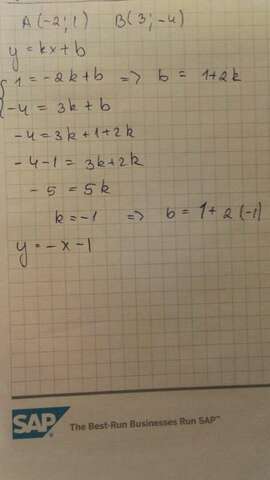 A(-2; 1) B(3; -4)
y = kx + b
{ 1 = -2k + b => b = 1+2k
-4 = 3k + b
-4 = 3k + 1 + 2k
-4 -1 = 3k + 2k
-5 = 5k
k = -1 => b = 1 + 2 (-1)
y = -x - 1
SAP The Best-Run Businesses Run SAP™